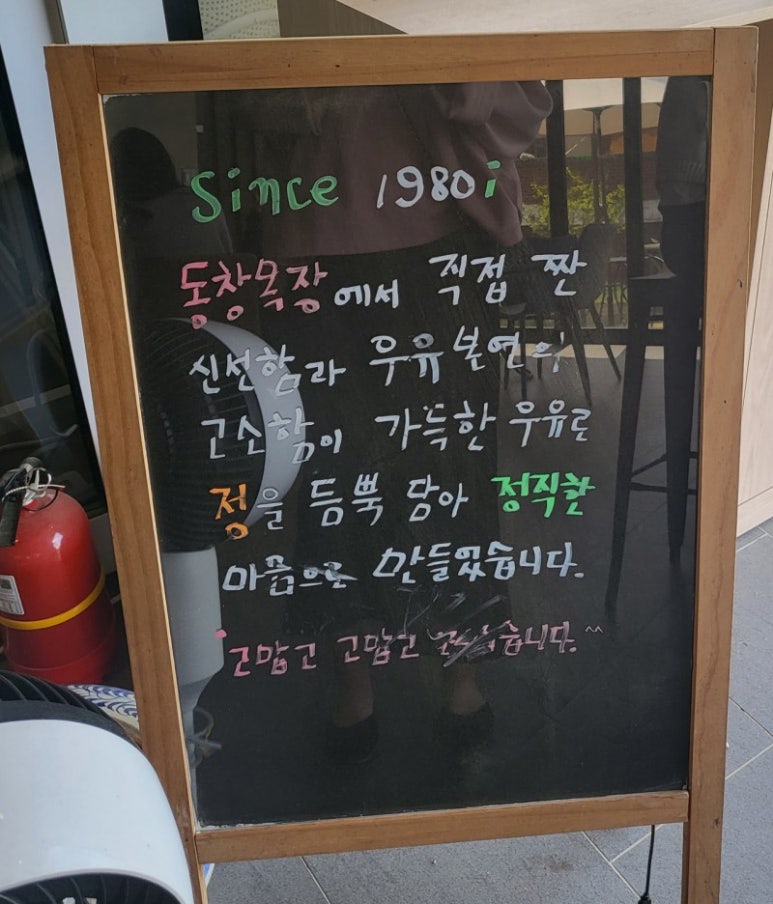 Since 1980i
동창목장에서 직접 짠
신선함과 우유 본연의
고소함이 가득한 우유로
정을 듬뿍 담아 정직한
마음으로 만들었습니다.
고맙고 고맙고 습니다.^^